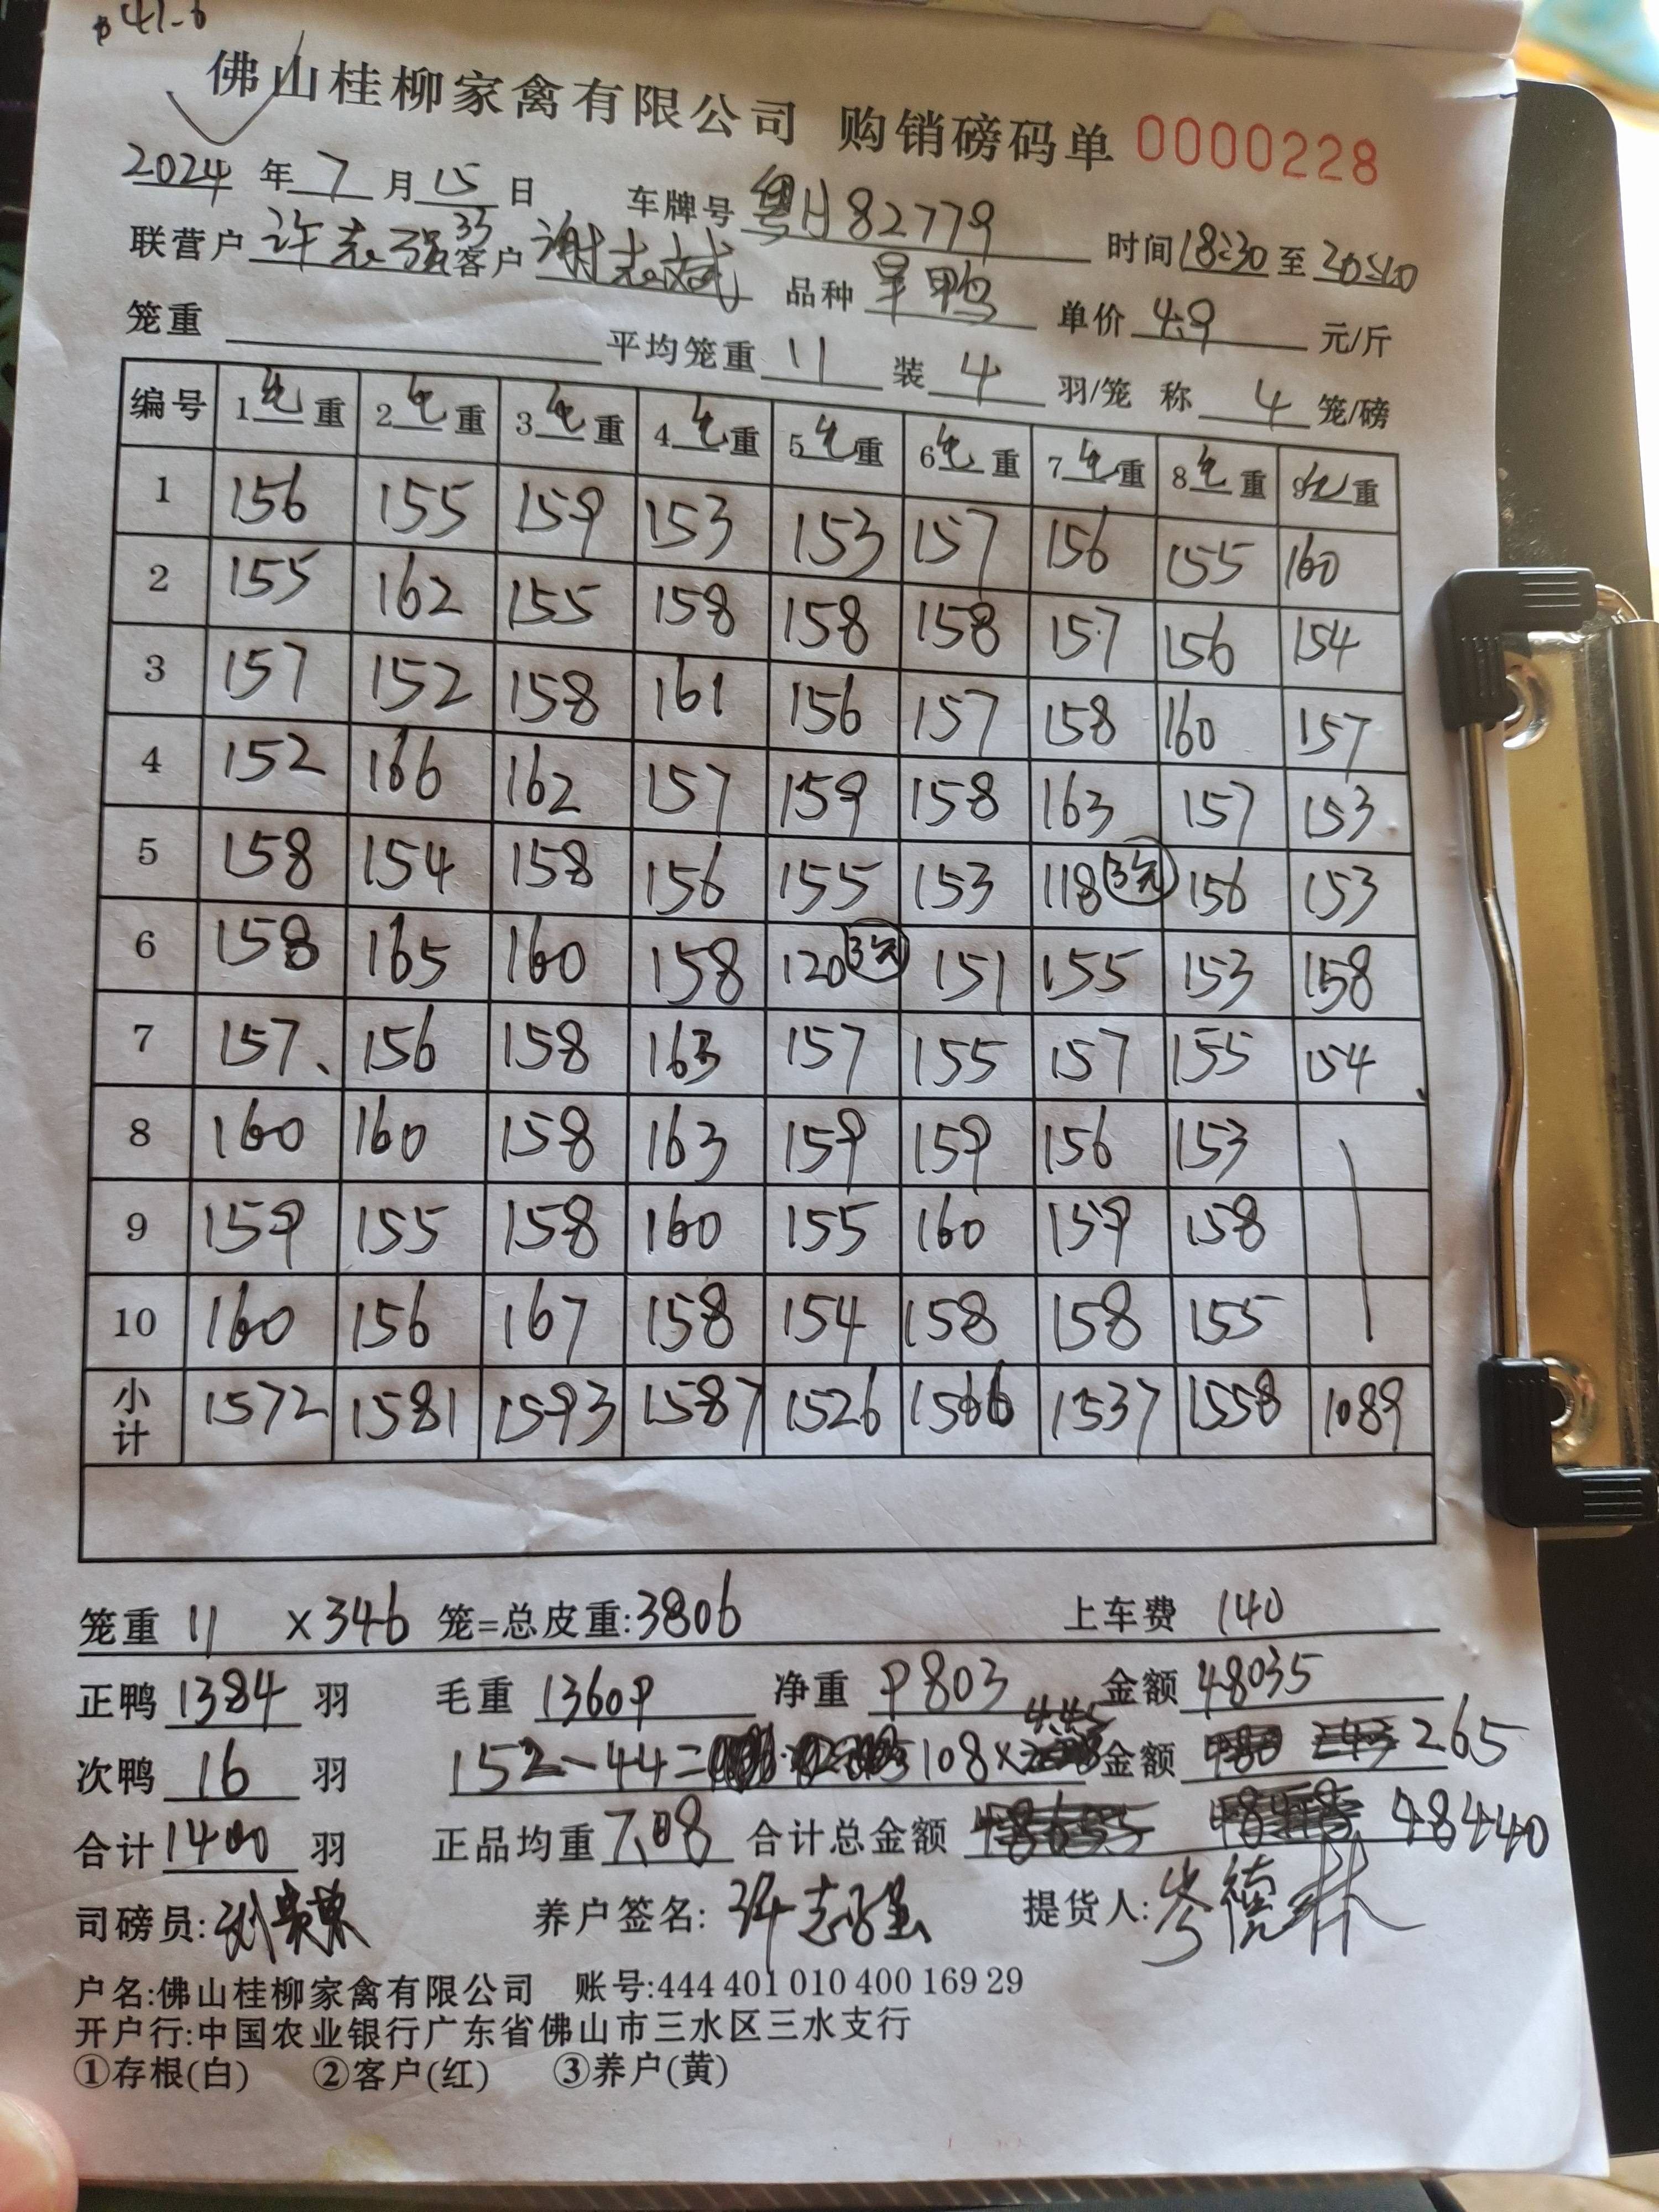 41-6
佛山桂柳家禽有限公司 购销磅码单 0000228
2024 年 7 月 15 日 车牌号 粤H82779
联营户 许志强 33 客户 谢志斌 品种 旱鸭 时间 18:30 至 20:10
单价 4.9 元/斤
笼重 平均笼重 11 装 4 羽/笼 称 4 笼/磅
编号 1 毛 重 2 毛 重 3 毛 重 4 毛 重 5 毛 重 6 毛 重 7 毛 重 8 毛 重 9 毛 重
1 156 155 159 153 153 157 156 155 160
2 155 162 155 158 158 158 157 156 154
3 157 152 158 161 156 157 158 160 157
4 152 166 162 157 159 158 163 157 153
5 158 154 158 156 155 153 118 3笼 156 153
6 158 165 160 158 120 3笼 151 155 153 158
7 157、 156 158 163 157 155 157 155 154
8 160 160 158 163 159 159 156 153
9 159 155 158 160 155 160 159 158
10 160 156 167 158 154 158 158 155
小计 1572 1581 1593 1587 1526 1566 1537 1558 1089
笼重 11 ×346 笼=总皮重:3806 上车费 140
正鸭 1384 羽 毛重 13609 净重 9803 金额 48035
次鸭 16 羽 152-44= 108× 4.45 金额 265
合计 1400 羽 正品均重 7.08 合计总金额 48440
司磅员: 养户签名: 许志强 提货人: 岑德林
户名:佛山桂柳家禽有限公司 账号:444 401 010 400 169 29
开户行:中国农业银行广东省佛山市三水区三水支行
①存根(白) ②客户(红) ③养户(黄)